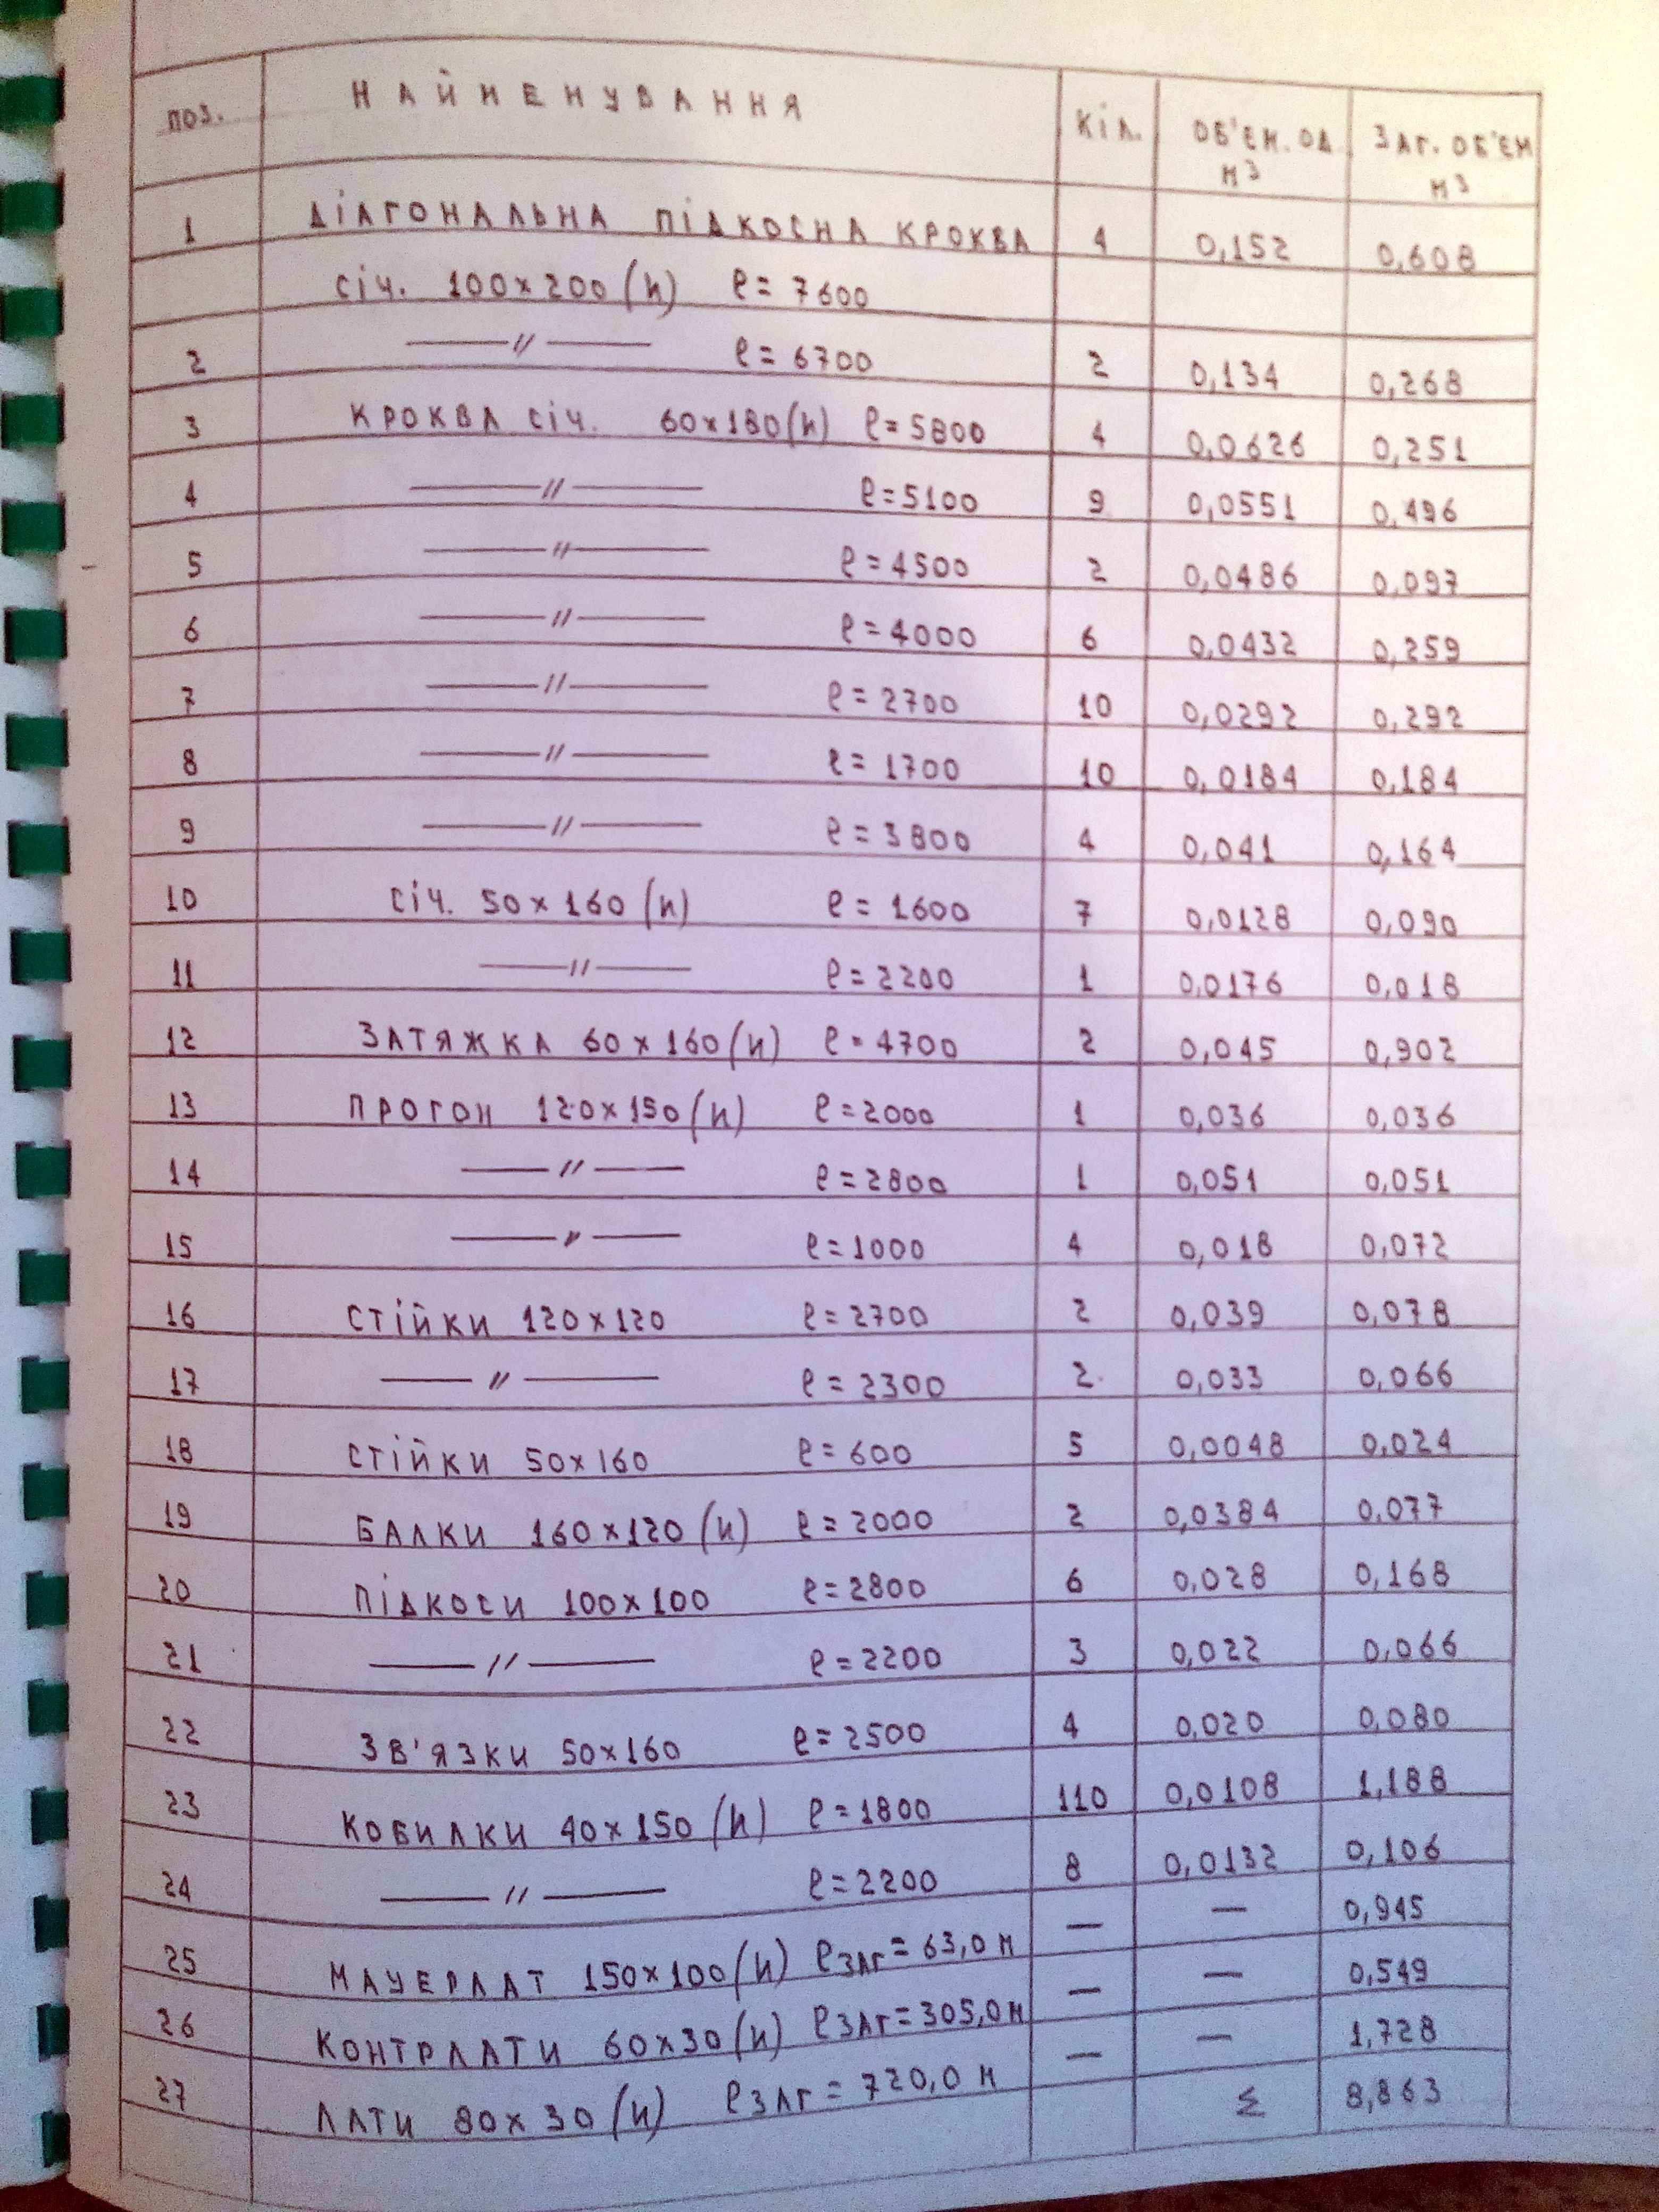 ПОЗ. НАЙМЕНУВАННЯ КІЛ. ОБ'ЄМ. ОД. М3 ЗАГ. ОБ'ЄМ М3
1 ДІАГОНАЛЬНА ПІДКОСНА КРОКВА 4 0,152 0,608
СІЧ. 100×200(h) ℓ= 7600
2 —〃— ℓ= 6700 2 0,134 0,268
3 КРОКВА СІЧ. 60×180(h) ℓ=5800 4 0,0626 0,251
4 —〃— ℓ=5100 9 0,0551 0,496
5 —〃— ℓ=4500 2 0,0486 0,097
6 —〃— ℓ=4000 6 0,0432 0,259
7 —〃— ℓ=2700 10 0,0292 0,292
8 —〃— ℓ=1700 10 0,0184 0,184
9 —〃— ℓ=3800 4 0,041 0,164
10 СІЧ. 50×160(h) ℓ=1600 7 0,0128 0,090
11 —〃— ℓ=2200 1 0,0176 0,018
12 ЗАТЯЖКА 60×160(h) ℓ=4700 2 0,045 0,902
13 ПРОГОН 120×150(h) ℓ=2000 1 0,036 0,036
14 —〃— ℓ=2800 1 0,051 0,051
15 —〃— ℓ=1000 4 0,018 0,072
16 СТІЙКИ 120×120 ℓ=2700 2 0,039 0,078
17 —〃— ℓ=2300 2 0,033 0,066
18 СТІЙКИ 50×160 ℓ=600 5 0,0048 0,024
19 БАЛКИ 160×120(h) ℓ=2000 2 0,0384 0.077
20 ПІДКОСИ 100×100 ℓ=2800 6 0,028 0,168
21 —〃— ℓ=2200 3 0,022 0,066
22 ЗВ'ЯЗКИ 50×160 ℓ=2500 4 0,020 0,080
23 КОБИЛКИ 40×150(h) ℓ=1800 110 0,0108 1,188
24 —〃— ℓ=2200 8 0,0132 0,106
25 МАУЕРЛАТ 150×100(h) ℓЗАГ=63,0 М — — 0,945
26 КОНТРЛАТИ 60×30(h) ℓЗАГ=305,0 М — — 0,549
27 ЛАТИ 80×30(h) ℓЗАГ=720,0 М — — 1,728
Σ 8,863